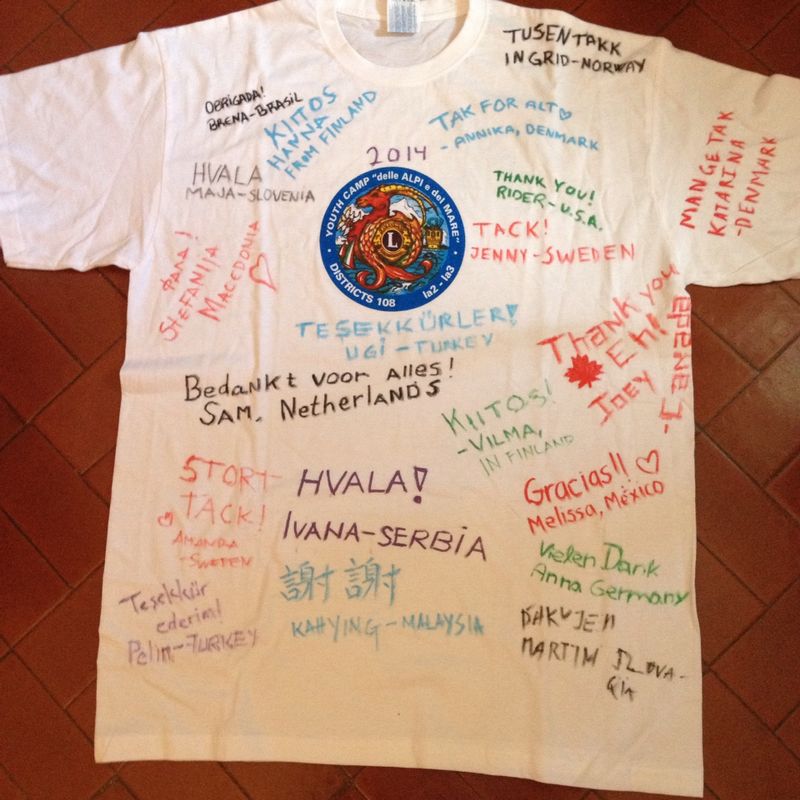 TUSEN TAKK
INGRID-NORWAY
OBRIGADA!
BRENA-BRASIL
KIITOS
HANNA
FROM FINLAND
TAK FOR ALT
- ANNIKA, DENMARK
MANGE TAK
KATARINA
-DENMARK
2014
HVALA
MAJA-SLOVENIA
YOUTH CAMP "delle ALPI e del MARE"
L
DISTRICTS 108 Ia2 - Ia3
THANK YOU!
RIDER-U.S.A.
TACK!
JENNY-SWEDEN
STEFANIJA
MACEDONIA
TEŞEKKÜRLER!
UGI-TURKEY
Thank you
Eh!
JOEY
Bedankt voor alles!
SAM, Netherlands
KIITOS!
-VILMA,
IN FINLAND
STORT
TACK!
AMANDA
-SWEDEN
HVALA!
IVANA-SERBIA
Gracias!!
Melissa, México
Vielen Dank
Anna Germany
謝謝
KAHYING-MALAYSIA
Teşekkür
ederim!
Pelin-TURKEY
ĎAKUJEM
MARTIN SLOVA-
KIA